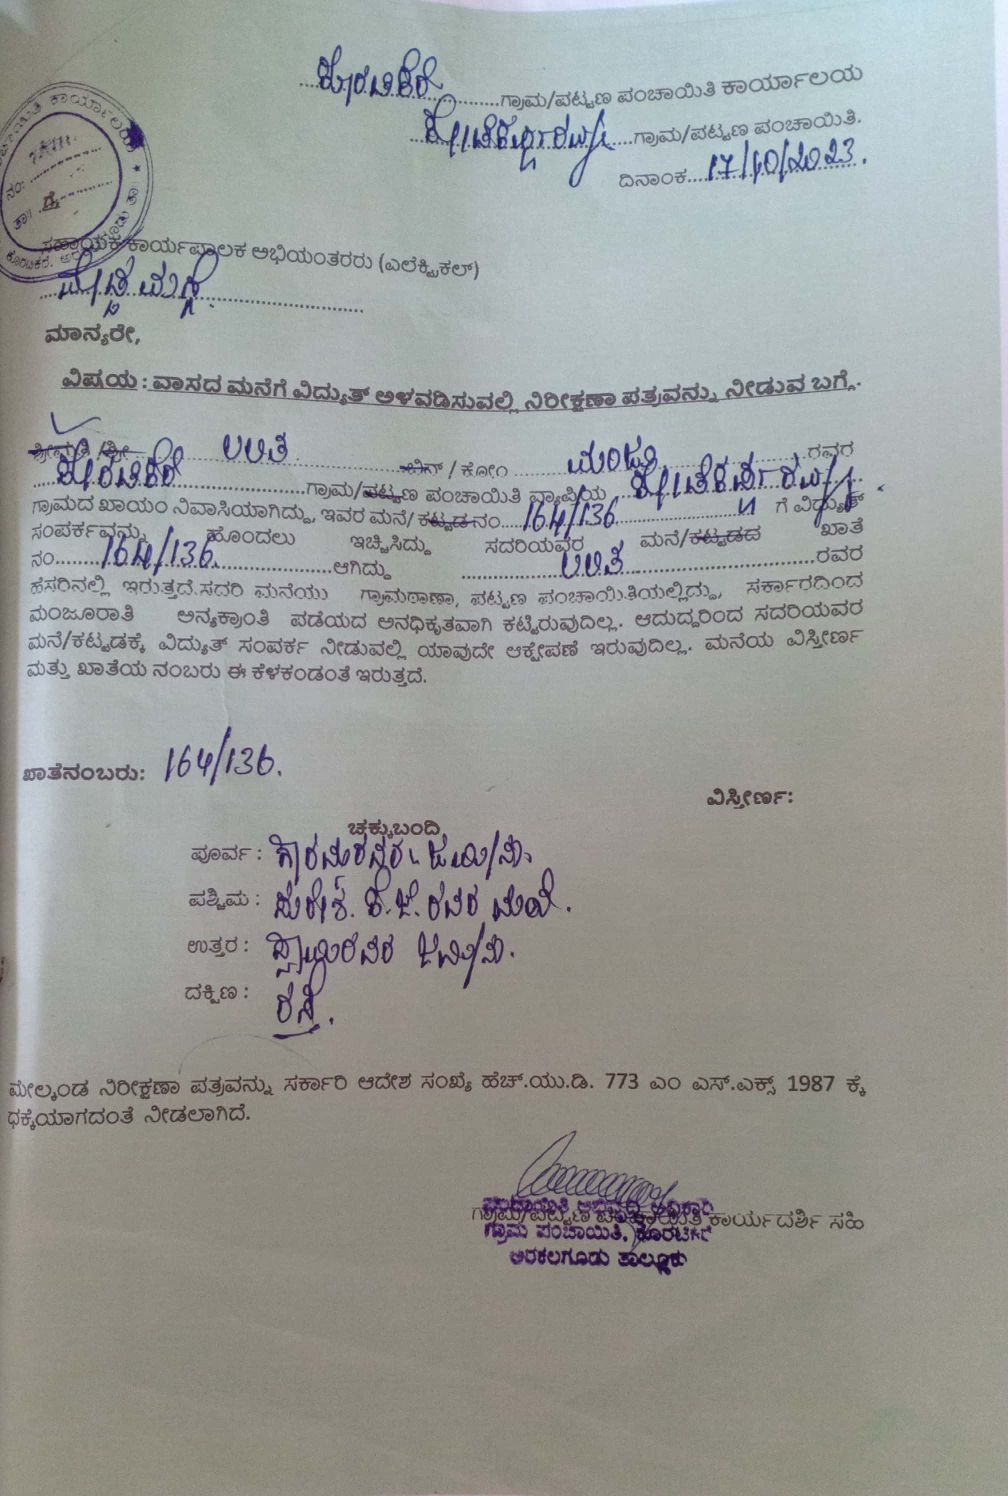 ಕೊರಟಿಕೆರೆ ಗ್ರಾಮ/ಪಟ್ಟಣ ಪಂಚಾಯಿತಿ ಕಾರ್ಯಾಲಯ
ಗ್ರಾಮ/ಪಟ್ಟಣ ಪಂಚಾಯಿತಿ.
ದಿನಾಂಕ 17/10/2023.
ನಂ:
ತಾ॥
ಸಹಾಯಕ ಕಾರ್ಯಪಾಲಕ ಅಭಿಯಂತರರು (ಎಲೆಕ್ಟ್ರಿಕಲ್)
ಮಾನ್ಯರೇ,
ವಿಷಯ : ವಾಸದ ಮನೆಗೆ ವಿದ್ಯುತ್ ಅಳವಡಿಸುವಲ್ಲಿ ನಿರೀಕ್ಷಣಾ ಪತ್ರವನ್ನು ನೀಡುವ ಬಗ್ಗೆ.
ಶ್ರೀಮತಿ /ಶ್ರೀ ಲಲಿತ ಬಿನ್ / ಕೋಂ ಮಂಜು ರವರ
ಕೊರಟಿಕೆರೆ ಗ್ರಾಮ/ಪಟ್ಟಣ ಪಂಚಾಯಿತಿ ವ್ಯಾಪ್ತಿಯ
ಗ್ರಾಮದ ಖಾಯಂ ನಿವಾಸಿಯಾಗಿದ್ದು, ಇವರ ಮನೆ/ ಕಟ್ಟಡ ನಂ 164/136 ಗೆ ವಿದ್ಯುತ್
ಸಂಪರ್ಕವನ್ನು ಹೊಂದಲು ಇಚ್ಛಿಸಿದ್ದು ಸದರಿಯವರ ಮನೆ/ಕಟ್ಟಡದ ಖಾತೆ
ನಂ 164/136. ಆಗಿದ್ದು ಲಲಿತ ರವರ
ಹೆಸರಿನಲ್ಲಿ ಇರುತ್ತದೆ.ಸದರಿ ಮನೆಯು ಗ್ರಾಮಠಾಣಾ, ಪಟ್ಟಣ ಪಂಚಾಯಿತಿಯಲ್ಲಿದ್ದು, ಸರ್ಕಾರದಿಂದ
ಮಂಜೂರಾತಿ ಅನ್ಯಕ್ರಾಂತಿ ಪಡೆಯದ ಅನಧಿಕೃತವಾಗಿ ಕಟ್ಟಿರುವುದಿಲ್ಲ. ಆದುದ್ದರಿಂದ ಸದರಿಯವರ
ಮನೆ/ಕಟ್ಟಡಕ್ಕೆ ವಿದ್ಯುತ್ ಸಂಪರ್ಕ ನೀಡುವಲ್ಲಿ ಯಾವುದೇ ಆಕ್ಷೇಪಣೆ ಇರುವುದಿಲ್ಲ. ಮನೆಯ ವಿಸ್ತೀರ್ಣ
ಮತ್ತು ಖಾತೆಯ ನಂಬರು ಈ ಕೆಳಕಂಡಂತೆ ಇರುತ್ತದೆ.
ಖಾತೆನಂಬರು: 164/136.
ವಿಸ್ತೀರ್ಣ:
ಚಕ್ಕುಬಂದಿ
ಪೂರ್ವ : ಜಮೀನು.
ಪಶ್ಚಿಮ : ಸುರೇಶ. ಕೆ.ಜೆ. ರವರ ಮನೆ.
ಉತ್ತರ : ಜಮೀನು.
ದಕ್ಷಿಣ : ರಸ್ತೆ.
ಮೇಲ್ಕಂಡ ನಿರೀಕ್ಷಣಾ ಪತ್ರವನ್ನು ಸರ್ಕಾರಿ ಆದೇಶ ಸಂಖ್ಯೆ ಹೆಚ್.ಯು.ಡಿ. 773 ಎಂ ಎಸ್.ಎಕ್ಸ್ 1987 ಕ್ಕೆ
ಧಕ್ಕೆಯಾಗದಂತೆ ನೀಡಲಾಗಿದೆ.
ಪಂಚಾಯಿತಿ ಅಭಿವೃದ್ಧಿ ಅಧಿಕಾರಿ
ಗ್ರಾಮ/ಪಟ್ಟಣ ಪಂಚಾಯಿತಿ ಕಾರ್ಯದರ್ಶಿ ಸಹಿ
ಗ್ರಾಮ ಪಂಚಾಯಿತಿ, ಕೊರಟಿಕೆರೆ
ಅರಕಲಗೂಡು ತಾಲ್ಲೂಕು